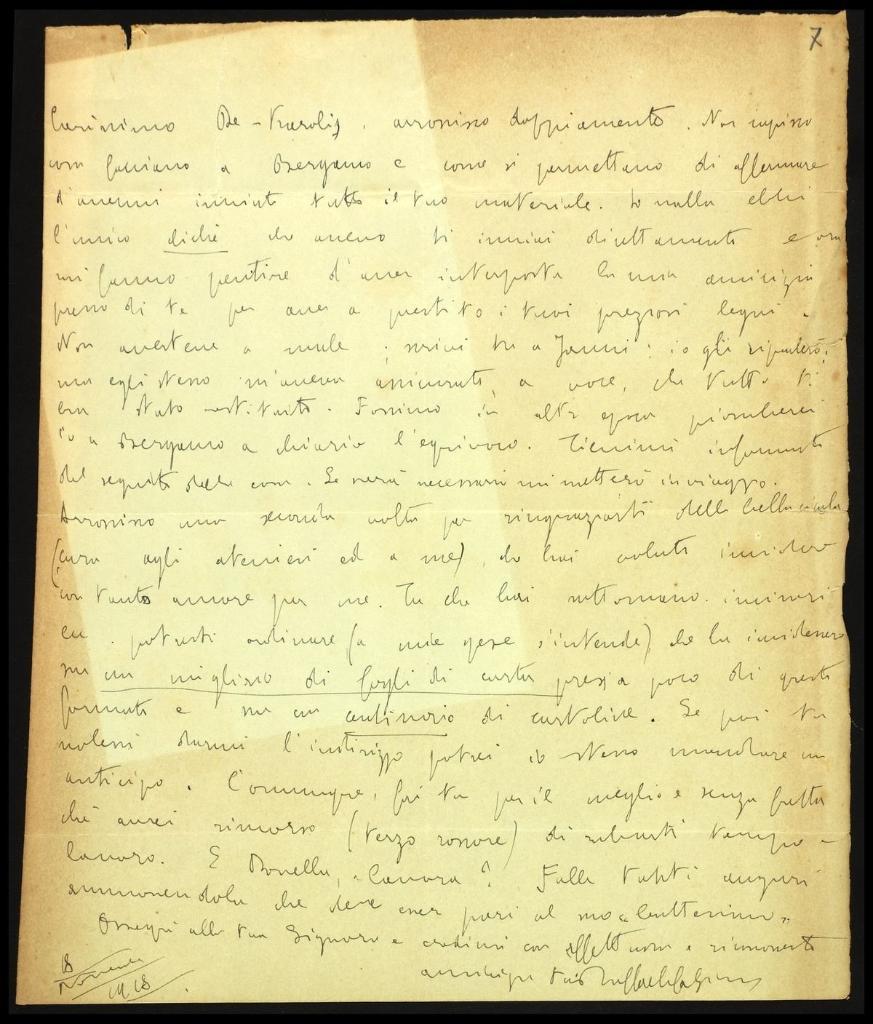 7
Carissimo De-Karolis, arrossisco doppiamente. Non capisco
cosa facciano a Bergamo e come si permettano di affermare
d'avermi inviato tutto il tuo materiale. Io nulla ebbi
l'unico è che avevo ti inviai direttamente e ora
mi fanno pentire d'aver interposta la mia amicizia
presso di te per aver a prestito i tuoi preziosi legni.
Non avertene a male; scrivi tu a Janni: io gli
ma egli stesso m'aveva assicurato, a voce, che tutto ti
era stato restituito. Fossimo in altra epoca piomberei
io a Bergamo a chiarir l'equivoco. Tienimi informato
del seguito della cosa. Se sarà necessario mi metterò in viaggio.
Arrossisco una seconda volta per ringraziarti della bella
(cara agli ateniesi ed a me) che hai voluto incidere
con tanto amore per me. Tu che hai sottomano
potresti ordinare (a mie spese s'intende) che la incidessero
su un migliaio di fogli di carta press'a poco di questo
formato e su un centinaio di cartoline. Se poi tu
volessi darmi l'indirizzo potrei io stesso mandare un
anticipo. Comunque, fai tu per il meglio e senza fretta
chè avrei rimorso (terzo rossore) di rubarti tempo e
lavoro. E Donella, lavora? Falle tanti auguri
ammonendola che deve esser pari al suo
Ossequi alla tua Signora e credimi con affettuosa e riconoscente
amicizia tuo Raffaele Calzini
18
Novembre
1918